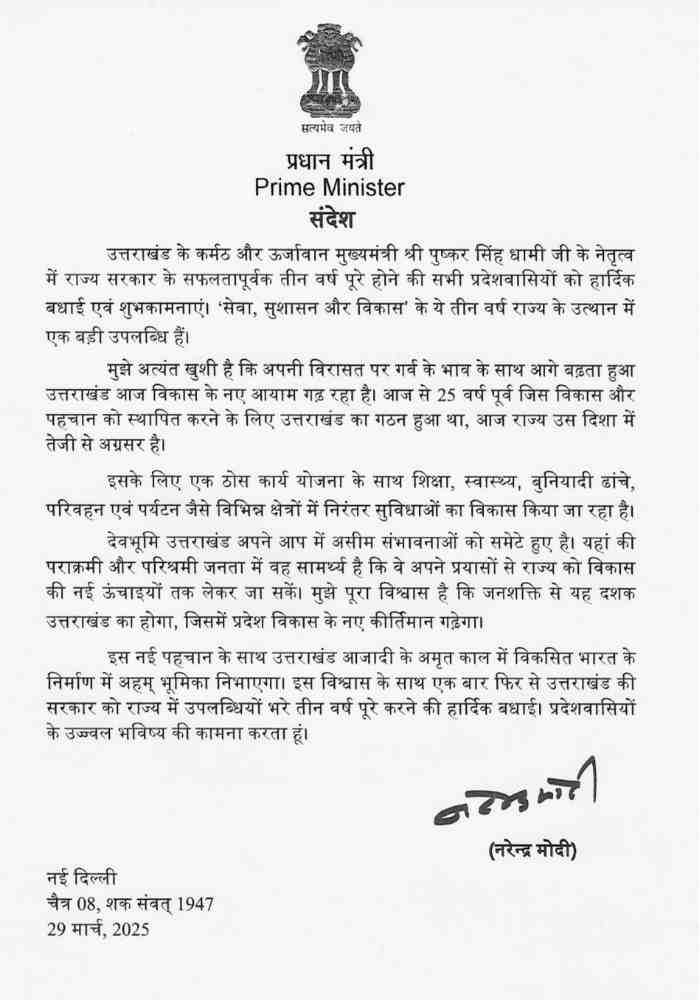 सत्यमेव जयते
प्रधान मंत्री
Prime Minister
संदेश
उत्तराखंड के कर्मठ और ऊर्जावान मुख्यमंत्री श्री पुष्कर सिंह धामी जी के नेतृत्व
में राज्य सरकार के सफलतापूर्वक तीन वर्ष पूरे होने की सभी प्रदेशवासियों को हार्दिक
बधाई एवं शुभकामनाएं। ‘सेवा, सुशासन और विकास’ के ये तीन वर्ष राज्य के उत्थान में
एक बड़ी उपलब्धि हैं।
मुझे अत्यंत खुशी है कि अपनी विरासत पर गर्व के भाव के साथ आगे बढ़ता हुआ
उत्तराखंड आज विकास के नए आयाम गढ़ रहा है। आज से 25 वर्ष पूर्व जिस विकास और
पहचान को स्थापित करने के लिए उत्तराखंड का गठन हुआ था, आज राज्य उस दिशा में
तेजी से अग्रसर है।
इसके लिए एक ठोस कार्य योजना के साथ शिक्षा, स्वास्थ्य, बुनियादी ढांचे,
परिवहन एवं पर्यटन जैसे विभिन्न क्षेत्रों में निरंतर सुविधाओं का विकास किया जा रहा है।
देवभूमि उत्तराखंड अपने आप में असीम संभावनाओं को समेटे हुए है। यहां की
पराक्रमी और परिश्रमी जनता में वह सामर्थ्य है कि वे अपने प्रयासों से राज्य को विकास
की नई ऊंचाइयों तक लेकर जा सकें। मुझे पूरा विश्वास है कि जनशक्ति से यह दशक
उत्तराखंड का होगा, जिसमें प्रदेश विकास के नए कीर्तिमान गढ़ेगा।
इस नई पहचान के साथ उत्तराखंड आजादी के अमृत काल में विकसित भारत के
निर्माण में अहम् भूमिका निभाएगा। इस विश्वास के साथ एक बार फिर से उत्तराखंड की
सरकार को राज्य में उपलब्धियों भरे तीन वर्ष पूरे करने की हार्दिक बधाई। प्रदेशवासियों
के उज्ज्वल भविष्य की कामना करता हूं।
नरेन्द्र मोदी
(नरेन्द्र मोदी)
नई दिल्ली
चैत्र 08, शक संवत् 1947
29 मार्च, 2025